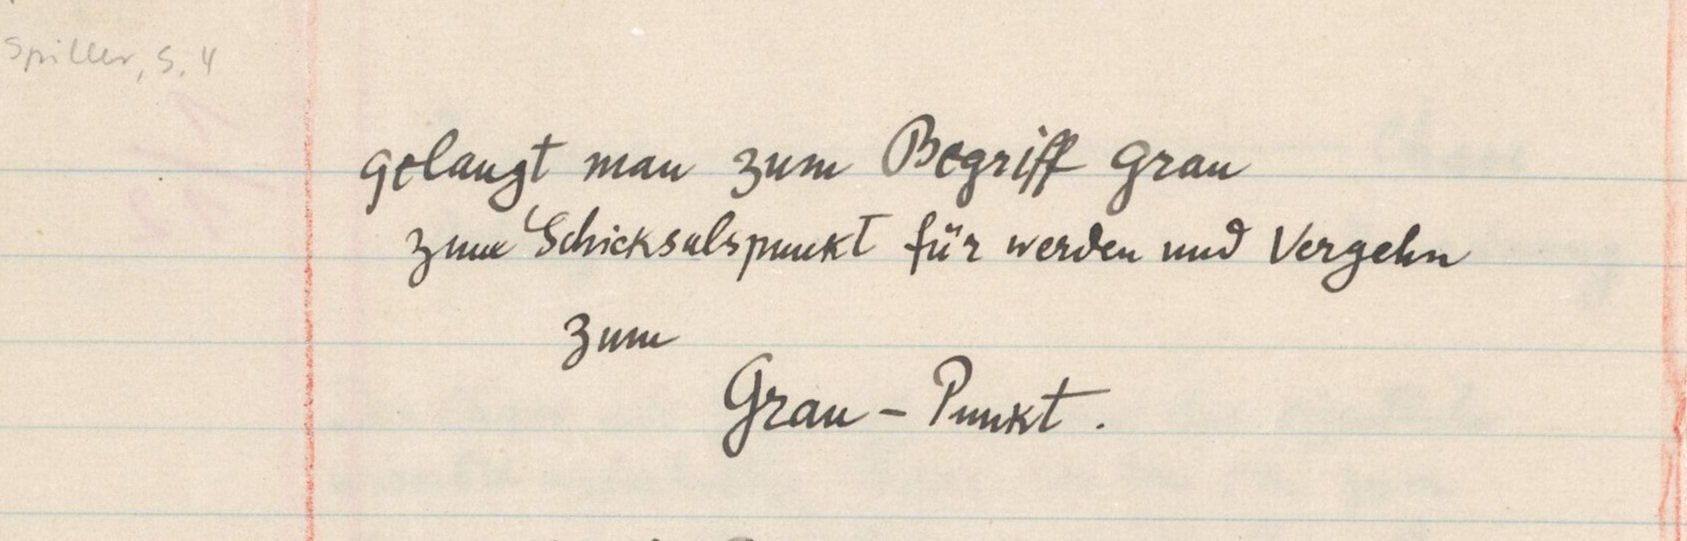 Spiller, S. 4
gelangt man zum Begriff grau
zum Schicksalspunkt für werden und Vergehn
zum
Grau - Punkt.